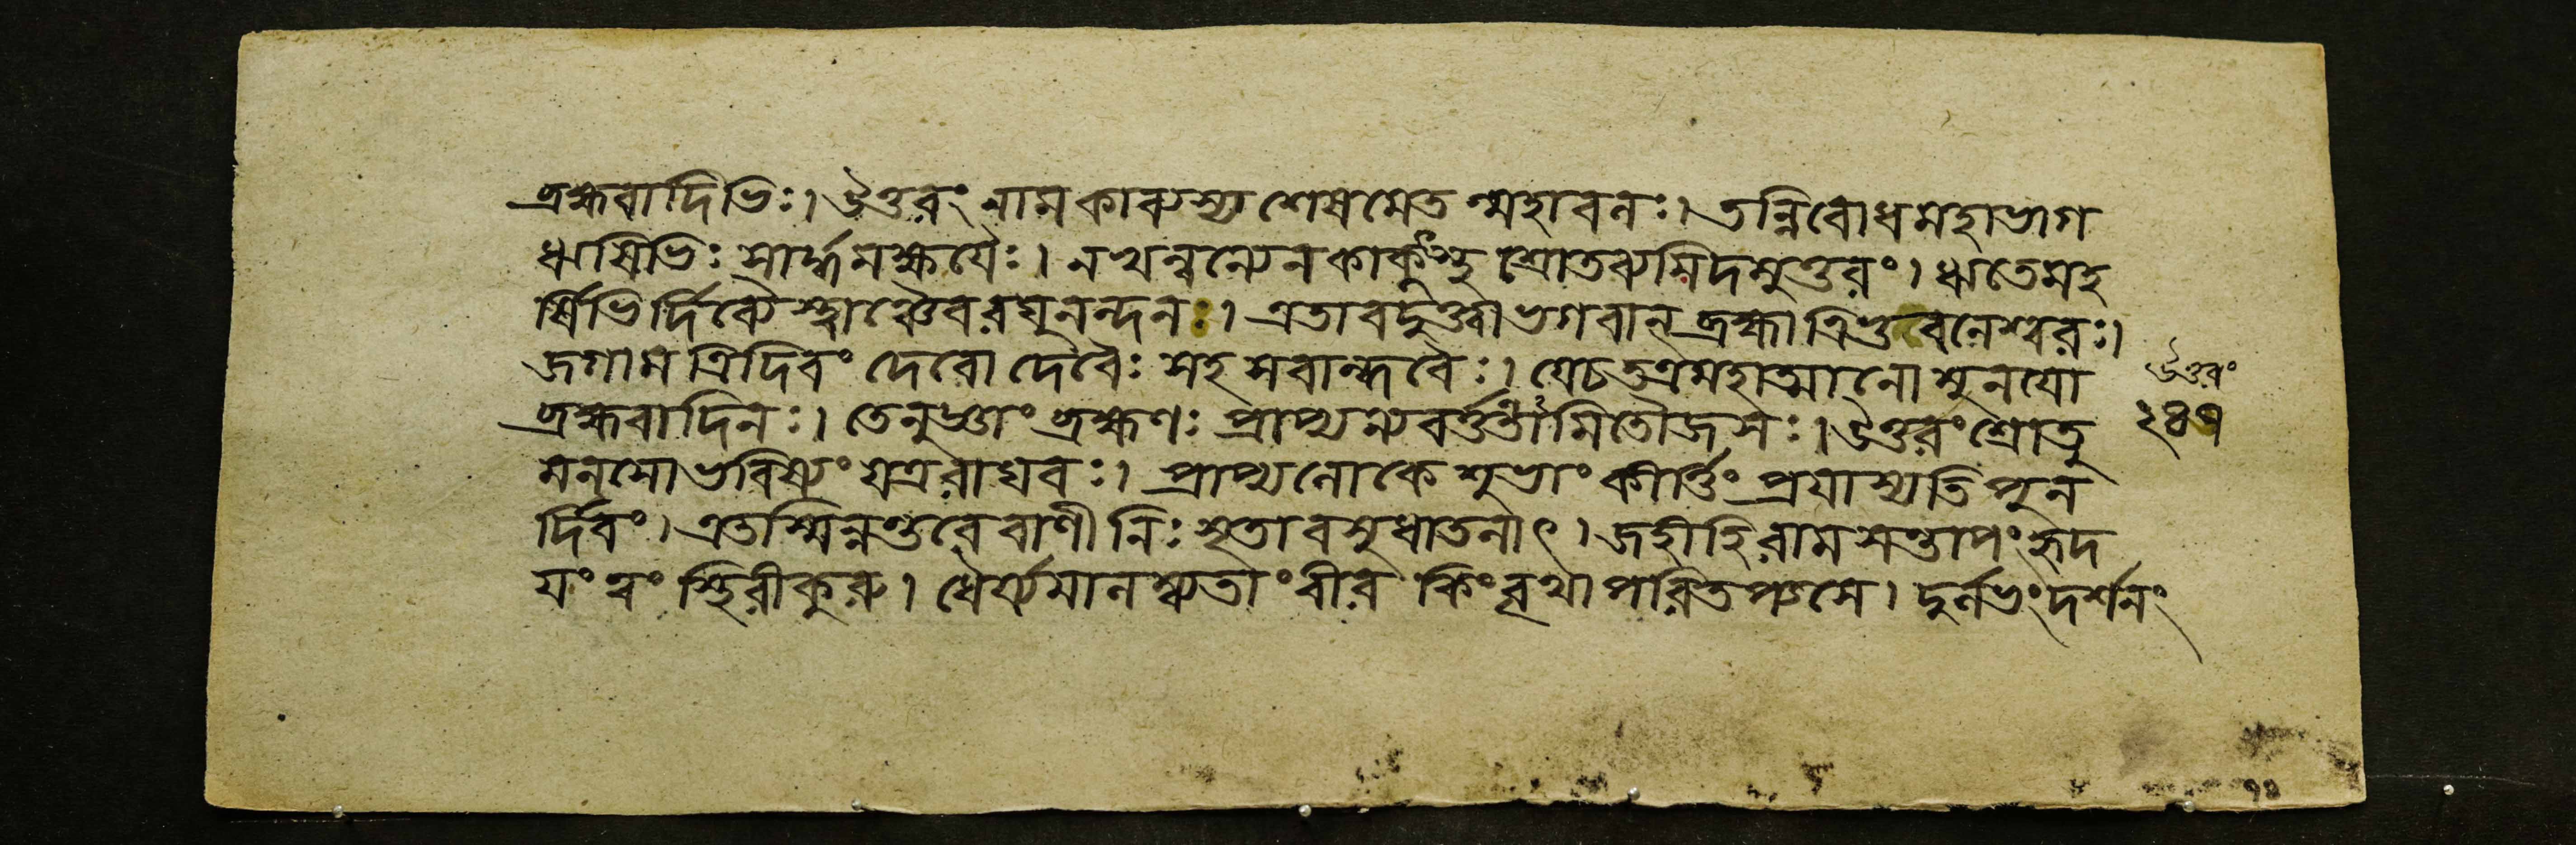 ব্রহ্মবাদিভিঃ। উত্তরং নাম কাব্যস্য শেষমেত ন্মহাবনঃ। তন্নিবোধমহাভাগ
ঋষিভিঃ সার্দ্ধমক্ষযৈঃ। নখন্বন্যেনকাকুৎস্থ শ্রোতব্যমিদমুত্তরং। ঋতেমহ
র্ষিভির্দিব্যৈ স্ত্বাঞ্চৈবরঘুনন্দনঃ। এতাবদুক্ত্বাভগবান্ ব্রহ্মাত্রিভুবনেশ্বরঃ।
জগাম ত্রিদিবং দেবো দেবৈঃ সহ সবান্ধবৈঃ। যেচতত্রমহাত্মানো মুনযো
উত্তরং
ব্রহ্মবাদিনঃ। তেনুজ্ঞাং ব্রহ্মণঃ প্রাপ্য ন্যবর্ত্তন্তামিতৌজসঃ। উত্তরংশ্রোতু
২৪৭
মনসোভবিষ্যং যত্ররাঘবঃ। প্রাপ্যলোকে শুভাং কীর্ত্তিং প্রযাস্যতি পুন
র্দিবং। এতস্মিন্নন্তরে বাণী নিঃসৃতাবসুধাতলাৎ। জহীহিরামসন্তাপং হৃদ
যং ত্বং স্থিরীকুরু। ধৈর্য্যমালম্ব্যতাং বীর কিং বৃথাপরিতপ্যসে। দুর্লভং দর্শনং